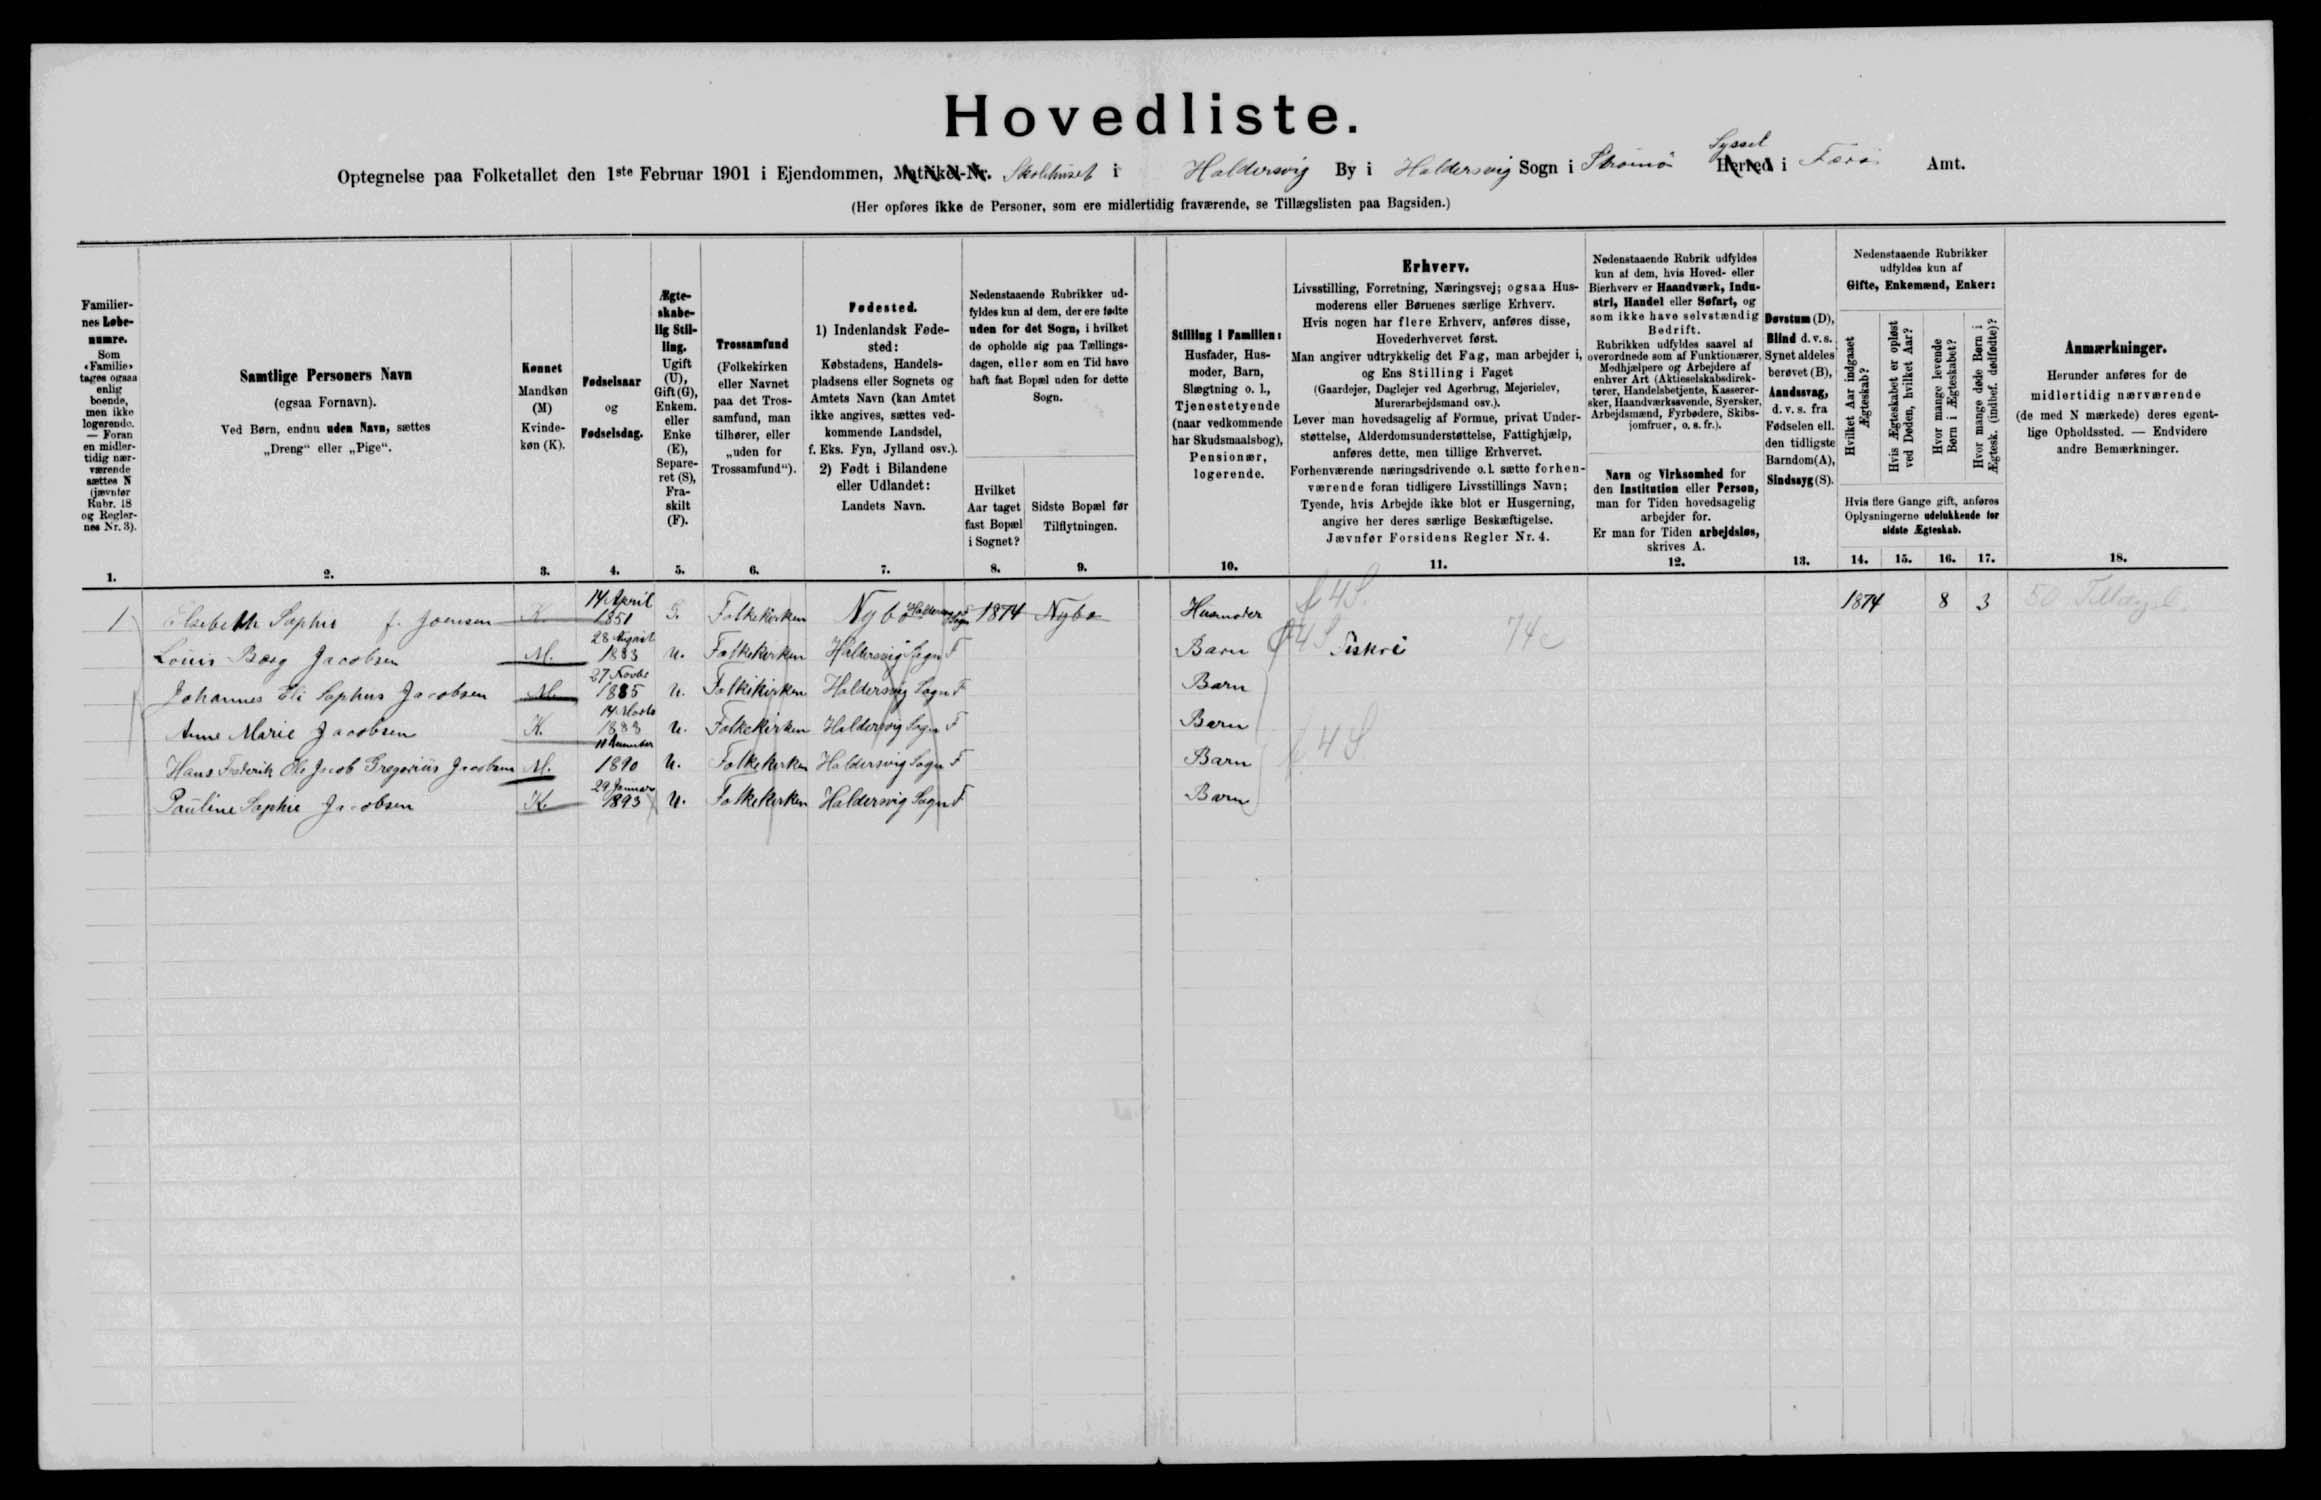 Hovedliste.
Syssel
Optegnelse paa Folketallet den 1ste Februar 1901 i Ejendommen, Matrikel-Nr. Skolehuset i Haldersvig By i Haldersvig Sogn i Strømø Herred i Færø Amt.
(Her opføres ikke de Personer, som ere midlertidig fraværende, se Tillægslisten paa Bagsiden.)
Familier-
nes Løbe-
numre.
Som
«Familie»
tages ogsaa
enlig
boende,
men ikke
logerende.
— Foran
en midler-
tidig nær-
værende
sættes N
(jævnfør
Rubr. 18
og Regler-
nes Nr. 3).
1.
Samtlige Personers Navn
(ogsaa Fornavn).
Ved Børn, endnu uden Navn, sættes
„Dreng“ eller „Pige“.
2.
Kønnet
Mandkøn
(M)
Kvinde-
køn (K).
3.
Fødselsaar
og
Fødselsdag.
4.
Ægte-
skabe-
lig Stil-
ling.
Ugift
(U),
Gift (G),
Enkem.
eller
Enke
(E),
Separe-
ret (S),
Fra-
skilt
(F).
5.
Trossamfund
(Folkekirken
eller Navnet
paa det Tros-
samfund, man
tilhører, eller
„uden for
Trossamfund“).
6.
Fødested.
1) Indenlandsk Føde-
sted:
Købstadens, Handels-
pladsens eller Sognets og
Amtets Navn (kan Amtet
ikke angives, sættes ved-
kommende Landsdel,
f. Eks. Fyn, Jylland osv.).
2) Født i Bilandene
eller Udlandet:
Landets Navn.
7.
Nedenstaaende Rubrikker ud-
fyldes kun af dem, der ere fødte
uden for det Sogn, i hvilket
de opholde sig paa Tællings-
dagen, eller som en Tid have
haft fast Bopæl uden for dette
Sogn.
Hvilket
Aar taget
fast Bopæl
i Sognet?
8.
Sidste Bopæl før
Tilflytningen.
9.
Stilling i Familien:
Husfader, Hus-
moder, Barn,
Slægtning o. l.,
Tjenestetyende
(naar vedkommende
har Skudsmaalsbog),
Pensionær,
logerende.
10.
Erhverv.
Livsstilling, Forretning, Næringsvej; ogsaa Hus-
moderens eller Børnenes særlige Erhverv.
Hvis nogen har flere Erhverv, anføres disse,
Hovederhvervet først.
Man angiver udtrykkelig det Fag, man arbejder i,
og Ens Stilling i Faget
(Gaardejer, Daglejer ved Agerbrug, Mejerielev,
Murerarbejdsmand osv.).
Lever man hovedsagelig af Formue, privat Under-
støttelse, Alderdomsunderstøttelse, Fattighjælp,
anføres dette, men tillige Erhvervet.
Forhenværende næringsdrivende o. l. sætte forhen-
værende foran tidligere Livsstillings Navn;
Tyende, hvis Arbejde ikke blot er Husgerning,
angive her deres særlige Beskæftigelse.
Jævnfør Forsidens Regler Nr. 4.
11.
Nedenstaaende Rubrik udfyldes
kun af dem, hvis Hoved- eller
Bierhverv er Haandværk, Indu-
stri, Handel eller Søfart, og
som ikke have selvstændig
Bedrift.
Rubrikken udfyldes saavel af
overordnede som af Funktionærer,
Medhjælpere og Arbejdere af
enhver Art (Aktieselskabsdirek-
tører, Handelsbetjente, Kasserer-
sker, Haandværkssvende, Syersker,
Arbejdsmænd, Fyrbødere, Skibs-
jomfruer, o. s. fr.).
Navn og Virksomhed for
den Institution eller Person,
man for Tiden hovedsagelig
arbejder for.
Er man for Tiden arbejdsløs,
skrives A.
12.
Døvstum (D),
Blind d. v. s.
Synet aldeles
berøvet (B),
Aandssvag,
d. v. s. fra
Fødselen ell.
den tidligste
Barndom (A),
Sindssyg (S).
13.
Nedenstaaende Rubrikker
udfyldes kun af
Gifte, Enkemænd, Enker:
Hvilket Aar indgaaet
Ægteskab?
Hvis Ægteskabet er opløst
ved Døden, hvilket Aar?
Hvor mange levende
Børn i Ægteskabet?
Hvor mange døde Børn i
Ægtesk. (indbef. dødfødte)?
Hvis flere Gange gift, anføres
Oplysningerne udelukkende for
sidste Ægteskab.
14. 15. 16. 17.
Anmærkninger.
Herunder anføres for de
midlertidig nærværende
(de med N mærkede) deres egent-
lige Opholdssted. — Endvidere
andre Bemærkninger.
18.
1 Elsebeth Sophie f. Joensen K. 14 April 1851 G. Folkekirken Nybø Haldersvig Sogn F 1874 Nybø Husmoder f 4 S. 1874 8 3
Louis Berg Jacobsen M. 28 August 1883 U. Folkekirken Haldersvig Sogn F Barn 4 S Fiskeri 74c
Johannes Eli Sophus Jacobsen M. 27 Novbr 1885 U. Folkekirken Haldersvig Sogn F Barn
Anne Marie Jacobsen K. 14 Marts 1888 U. Folkekirken Haldersvig Sogn F Barn
Hans Frederik Ole Jacob Gregoriús Jacobsen M. 1890 U. Folkekirken Haldersvig Sogn F Barn f. 4 S
Pauline Sophie Jacobsen K. 29 Januar 1893 U. Folkekirken Haldersvig Sogn F Barn